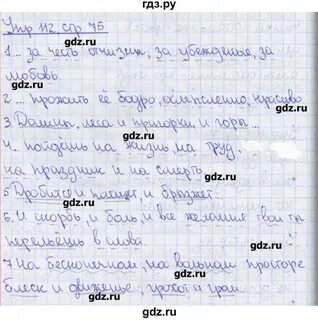 гдз.ру
Упр 112, стр 75
1... за честь отчизны, за убежденье, за
любовь.
2... прожить её бодро, осмысленно, красиво
3. Долины, леса и пригорки, и горы...
4. пойдёшь на жизнь, на труд,
на праздник и на смерть
5 Дробится и плещет, и брызжет...
6. И скорбь, и боль, и все желания твои ты
перельёшь в слова.
7 На бесконечном, на вольном просторе
блеск и движенье, грохот и гром
gdz.ru gdz.ru
gdz.ru gdz.ru
gdz.ru gdz.ru
gdz.ru gdz.ru
gdz.ru